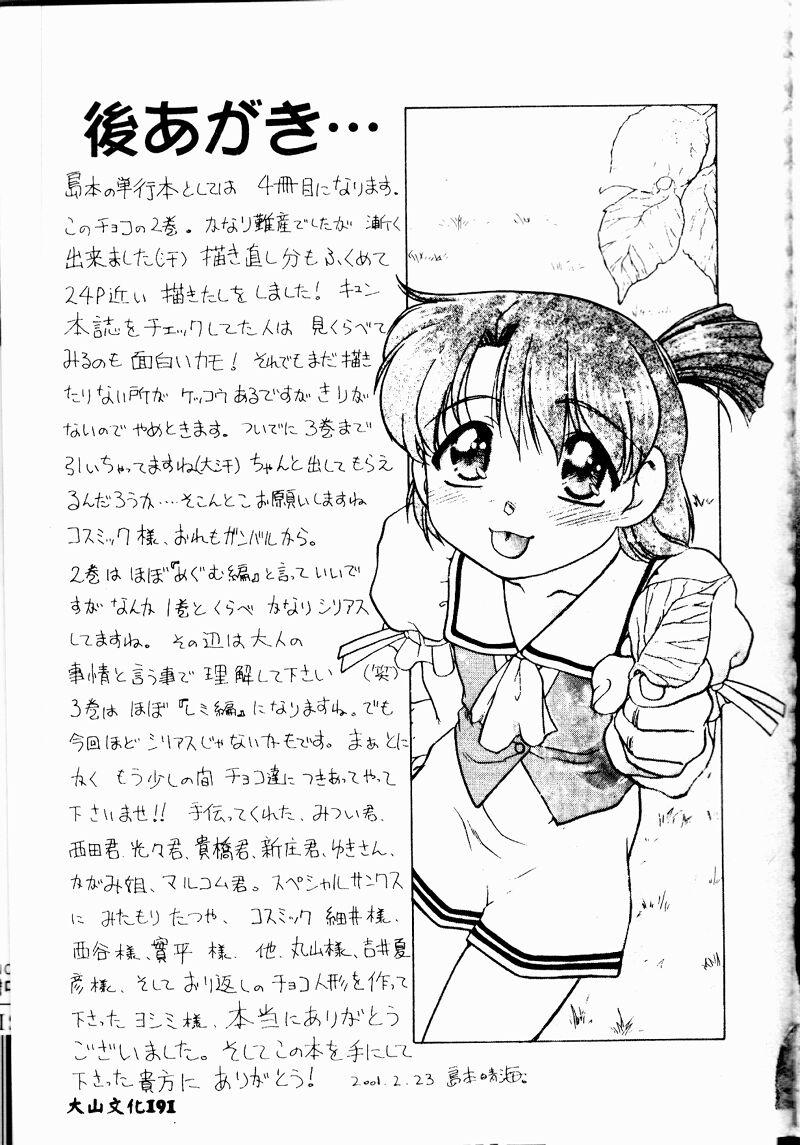 後あがき…
島本の単行本としては 4冊目になります.
このチョコの2巻。かなり難産でしたが 漸く
出来ました(汗) 描き直し分もふくめて
24P近い 描きたしをしました! キュン
本誌をチェックしてた人は 見くらべて
みるのも 面白いカモ! それでもまだ描き
たりない所が ケッコウあるですが きりが
ないので やめときます。ついでに 3巻まで
引いちゃってますね(大汗) ちゃんと出してもらえ
るんだろうか…そこんとこ お願いしますね
コスミック様、おれもガンバルから。
2巻は ほぼ『めぐむ編』と言っていいで
すが なんか 1巻とくらべ かなりシリアス
してますね。その辺は大人の
事情と言う事で 理解して下さい (笑)
3巻は ほぼ『レミ編』になりますね。でも
今回ほど シリアスじゃないかもです。まぁとに
かく もう少しの間 チョコ達に つきあってやって
下さいませ!! 手伝ってくれた、みつい君、
西田君、光々君、貴橋君、新庄君、ゆきさん、
かがみ姐、マルコム君。スペシャルサンクス
に みたもり たつや、コスミック 細井様、
西谷様、實平 様、他、丸山様、吉井夏
彦様、そして おり返しの チョコ人形を作って
下さった ヨシミ様、本当にありがとう
ございました。そしてこの本を手にして
下さった 貴方に ありがとう! 2001.2.23 島本晴海。
大山文化191